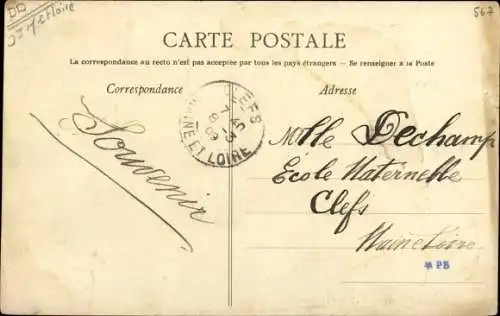 567
CARTE POSTALE
La correspondance au recto n'est pas acceptée par tous les pays étrangers — Se renseigner à la Poste
Correspondance
Adresse
CLEFS
MAINE ET LOIRE
Souvenir
Mlle Dechamp
Ecole Maternelle
Clefs
Maine Loire
PB